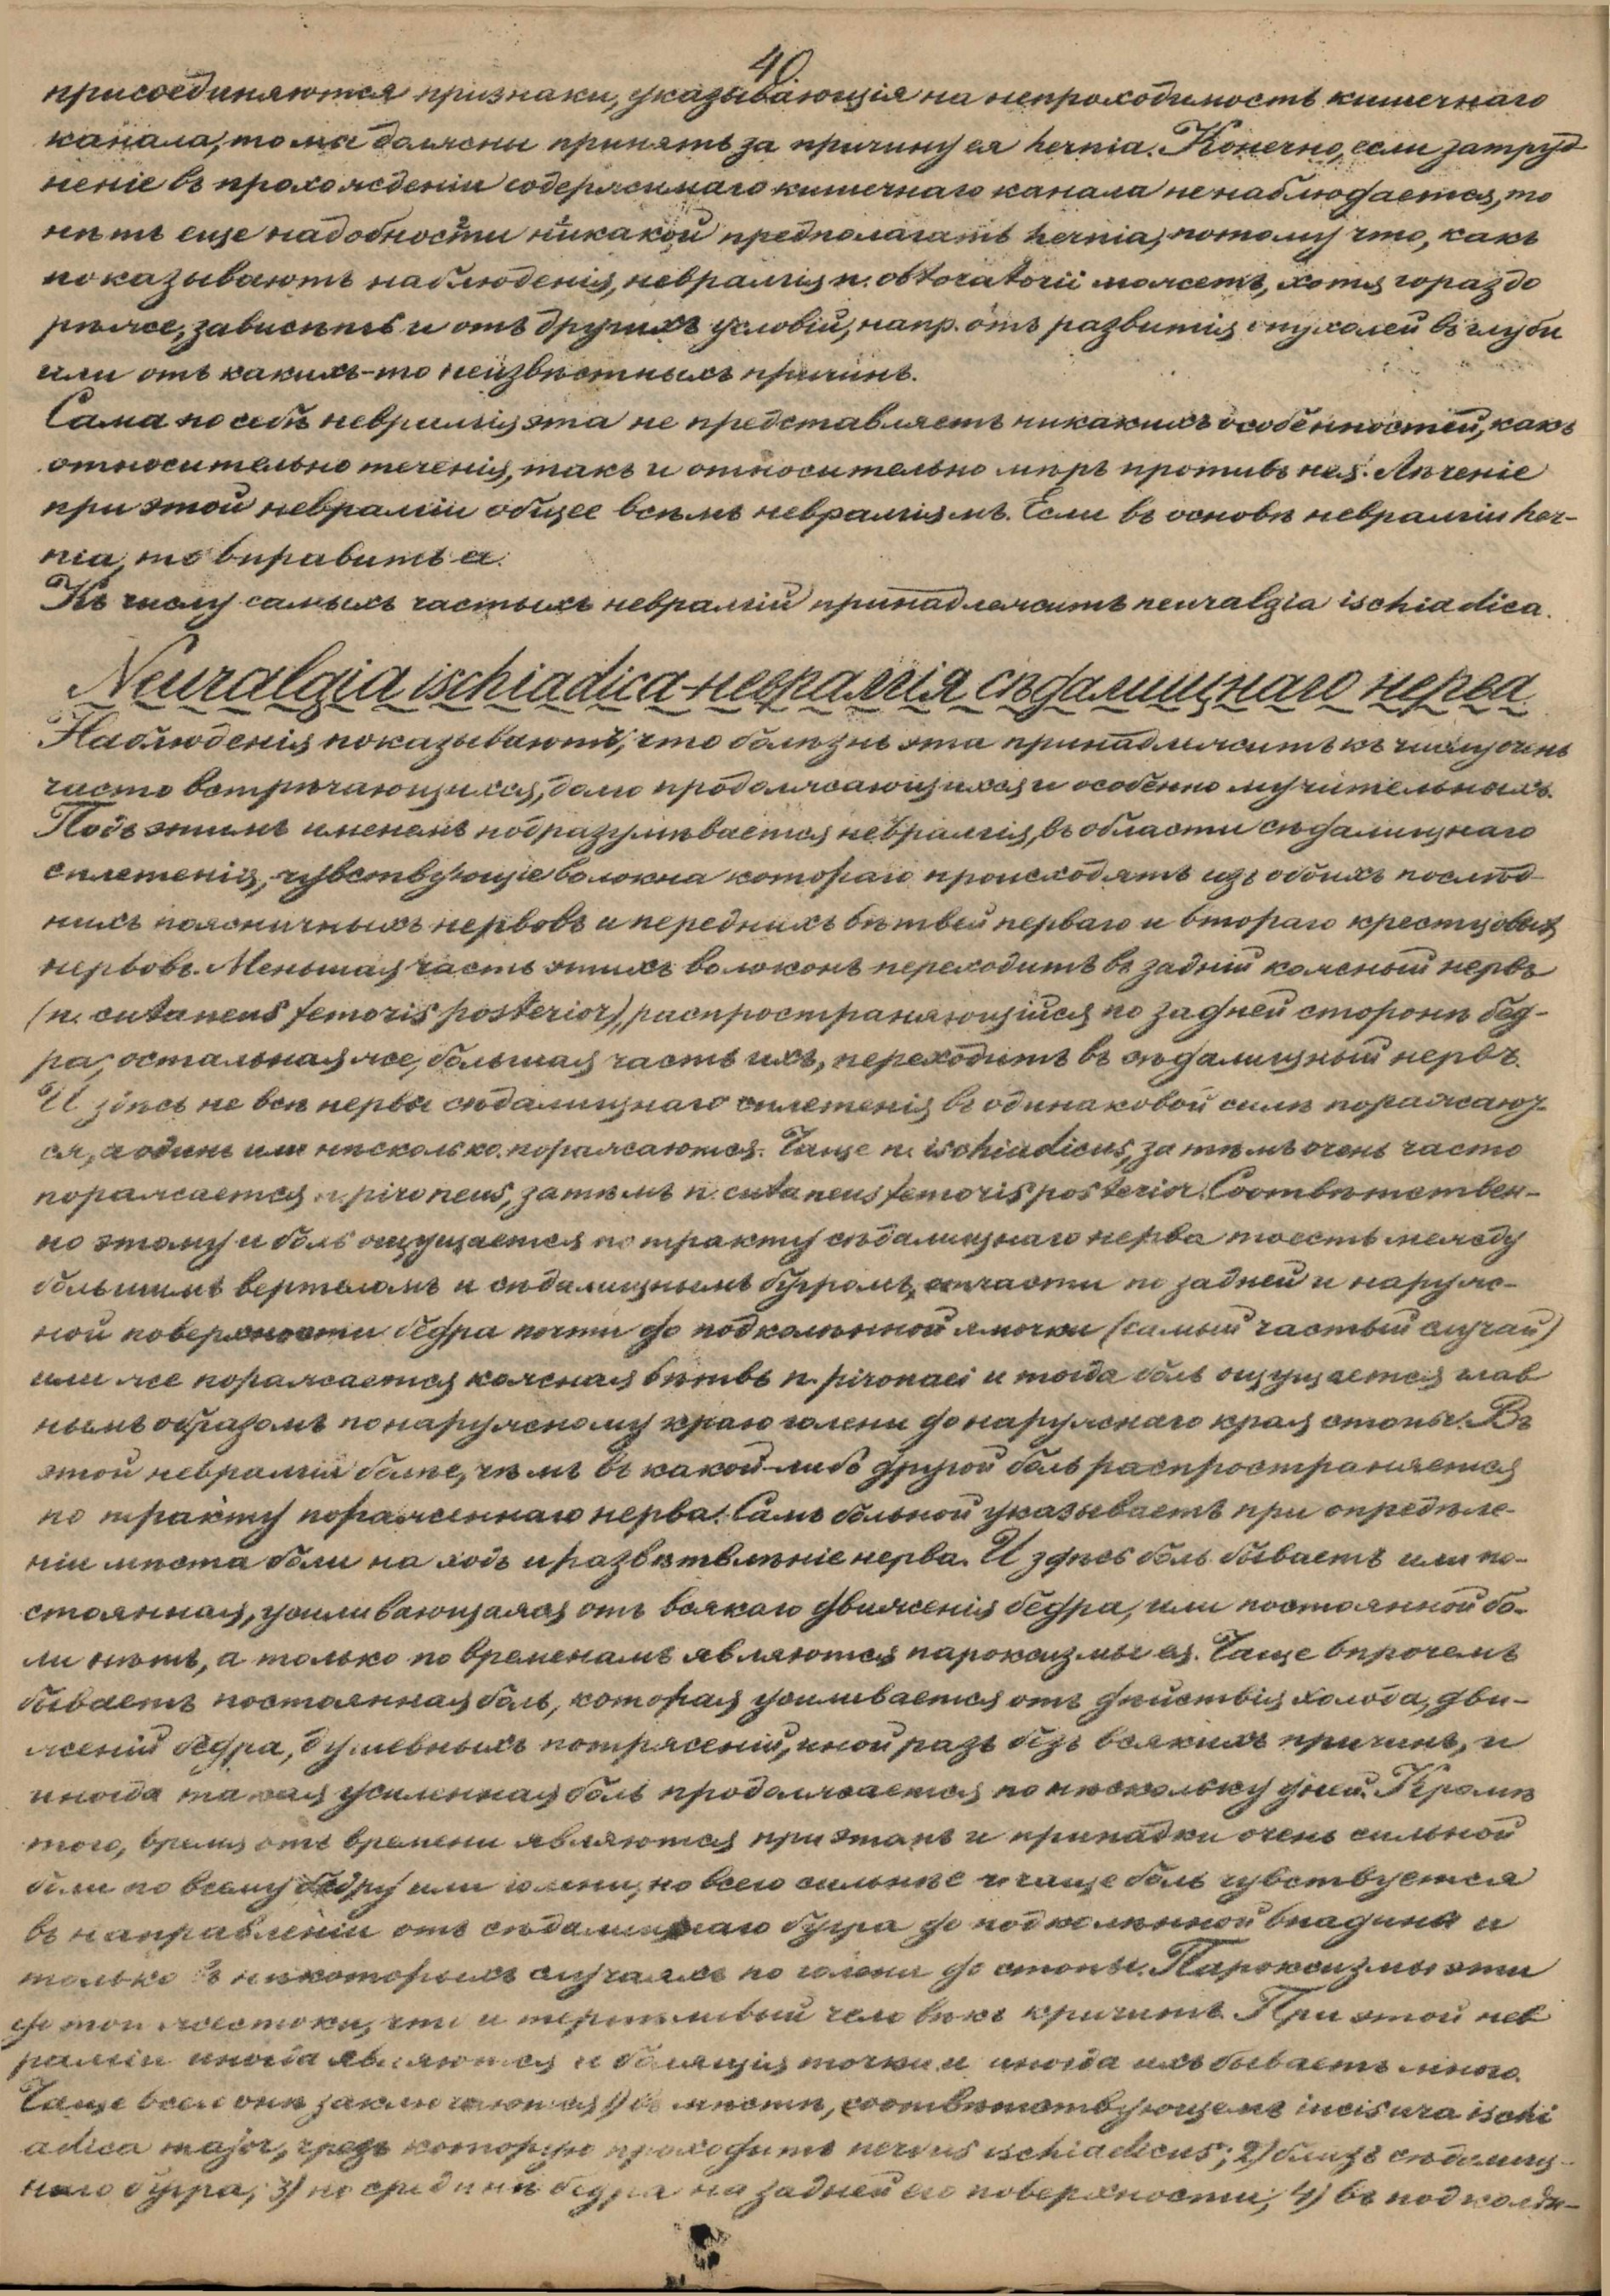 40.
присоединяются признаки, указывающія на непроходимость кишечнаго
канала, то мы должны принять за причину ея hernia. Конечно, если затруд
неніе въ прохожденіи содержимаго кишечнаго канала не наблюдается, то
нѣтъ еще надобности никакой предполагать hernia, потому что, какъ
показываютъ наблюденія, невралгія n. obturatorii можетъ, хотя гораздо
рѣже, зависѣть и отъ другихъ условій, напр. отъ развитія опухолей въ глуби
или отъ какихъ-то неизвѣстныхъ причинъ.
Сама по себѣ невралгія эта не представляетъ никакихъ особенностей, какъ
относительно теченія, такъ и относительно мѣръ противъ нея. Лѣченіе
при этой невралгіи общее всѣмъ невралгіямъ. Если въ основѣ невралгіи her-
nia, то вправить ея.
Къ числу самыхъ частыхъ невралгій принадлежитъ neuralgia ischiadica.
Neuralgia ischiadica-невралгія сѣдалищнаго нерва.
Наблюденія показываютъ, что болѣзнь эта принадлежитъ къ числу очень
часто встрѣчающихся, долго продолжающихся и особенно мучительныхъ.
Подъ этимъ именемъ подразумѣвается невралгія, въ области сѣдалищнаго
сплетенія, чувствующіе волокна котораго происходятъ изъ обоихъ послѣд-
нихъ поясничныхъ нервовъ и переднихъ вѣтвей перваго и втораго крестцовыхъ
нервовъ. Меньшая часть этихъ волоконъ переходитъ въ задній кожный нервъ
(n. cutaneus femoris posterior), распространяющійся по задней сторонѣ бед-
ра, остальная же, большая часть ихъ, переходитъ въ сѣдалищный нервъ.
И здѣсь не всѣ нервы сѣдалищнаго сплетенія въ одинаковой силѣ поражают-
ся, а одинъ или нѣсколько поражаются. Чаще n. ischiadicus, затѣмъ очень часто
поражается n. pironeus, затѣмъ n. cutaneus femoris posterior. Соотвѣтствен-
но этому и боль ощущается по тракту сѣдалищнаго нерва тоесть между
большимъ вертеломъ и сѣдалищнымъ бугромъ, отчасти по задней и наруж-
ной поверхности бедра почти до подколѣнной ямочки (самый частый случай)
или же поражается кожная вѣтвь n. pironaei и тогда боль ощущается глав
нымъ образомъ по наружному краю голени до наружнаго края стопы. Въ
этой невралгіи болѣе, чѣмъ въ какой-либо другой боль распространяется
по тракту пораженнаго нерва. Самъ больной указываетъ при опредѣле-
ніи мѣста боли на ходъ и развѣтвленіе нерва. И здѣсь боль бываетъ или по-
стоянная, усиливающаяся отъ всякаго движенія бедра, или постоянной бо-
ли нѣтъ, а только по временамъ являются пароксизмы ея. Чаще впрочемъ
бываетъ постоянная боль, которая усиливается отъ дѣйствія холода, дви-
женій бедра, душевныхъ потрясеній, иной разъ безъ всякихъ причинъ, и
иногда такая усиленная боль продолжается по нѣскольку дней. Кромѣ
того, время отъ времени являются при этомъ и припадки очень сильной
боли по всему бедру или голени, но всего сильнѣе и чаще боль чувствуется
въ направленіи отъ сѣдалищнаго бугра до подколѣнной впадины и
только въ нѣкоторыхъ случаяхъ по голени до стопы. Пароксизмы эти
до того жестоки, что и терпѣливый человѣкъ кричитъ. При этой нев
ралгіи иногда являются и болящія точки и иногда ихъ бываетъ много.
Чаще всего онѣ заключаются 1) въ мѣстѣ, соотвѣтствующемъ incisura ischi
adica major, чрезъ которую проходитъ nervus ischiadicus; 2) близъ сѣдалищ-
наго бугра; 3) по срединѣ бедра на задней его поверхности; 4) въ подколѣн-